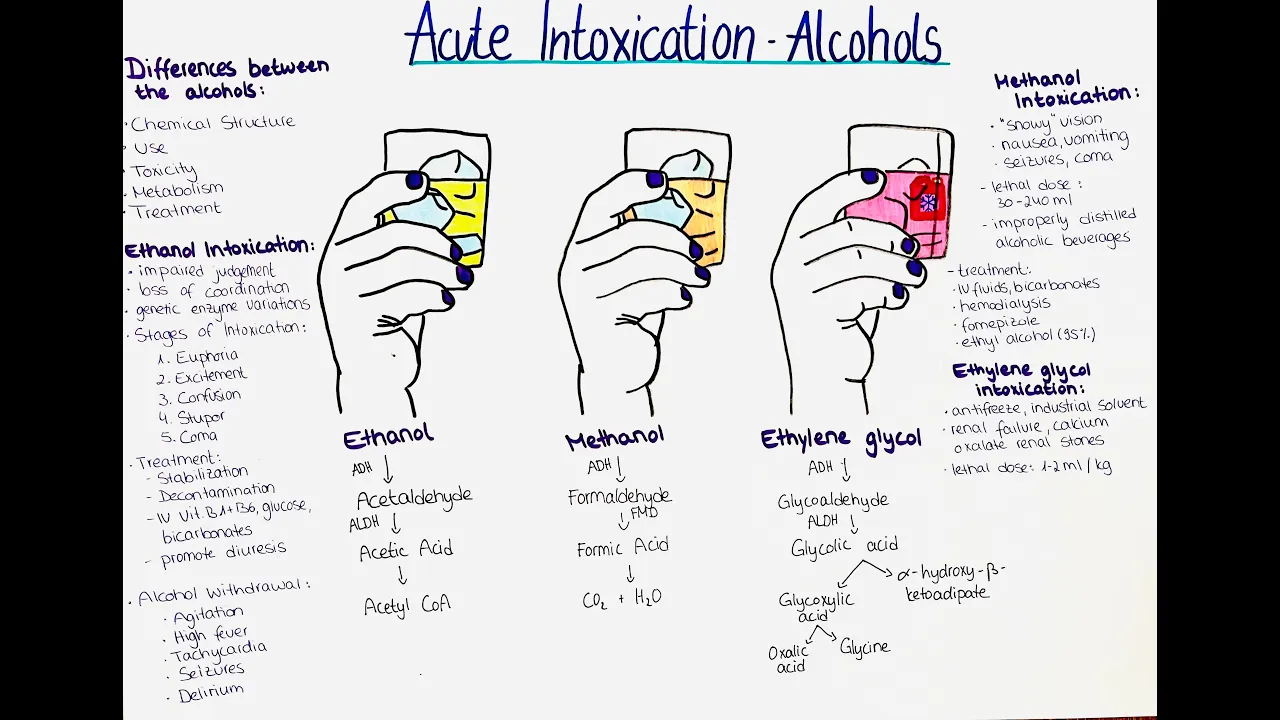 Acute Intoxication - Alcohols
Differences between
the alcohols:
· Chemical Structure
· Use
· Toxicity
· Metabolism
· Treatment
Ethanol Intoxication:
· impaired judgement
· loss of coordination
· genetic enzyme variations
· Stages of Intoxication:
1. Euphoria
2. Excitement
3. Confusion
4. Stupor
5. Coma
· Treatment:
- Stabilization
- Decontamination
- IV Vit. B1+B6, glucose,
bicarbonates
- promote diuresis
· Alcohol withdrawal:
· Agitation
· High fever
· Tachycardia
· Seizures
· Delirium
Ethanol
ADH ↓
Acetaldehyde
ALDH ↓
Acetic Acid
↓
Acetyl CoA
Methanol
ADH ↓
Formaldehyde
↓ FMD
Formic Acid
↓
CO₂ + H₂O
Ethylene glycol
ADH ↓
Glycoaldehyde
ALDH ↓
Glycolic acid
α-hydroxy-β-
ketoadipate
Glycoxylic
acid
Oxalic
acid
Glycine
Methanol
Intoxication:
· "snowy" vision
· nausea, vomiting
· seizures, coma
- lethal dose:
30-240 ml
- improperly distilled
alcoholic beverages
- treatment:
· IV fluids, bicarbonates
· hemodialysis
· fomepizole
· ethyl alcohol (95%)
Ethylene glycol
intoxication:
· antifreeze, industrial solvent
· renal failure, calcium
oxalate renal stones
· lethal dose: 1-2 ml / kg